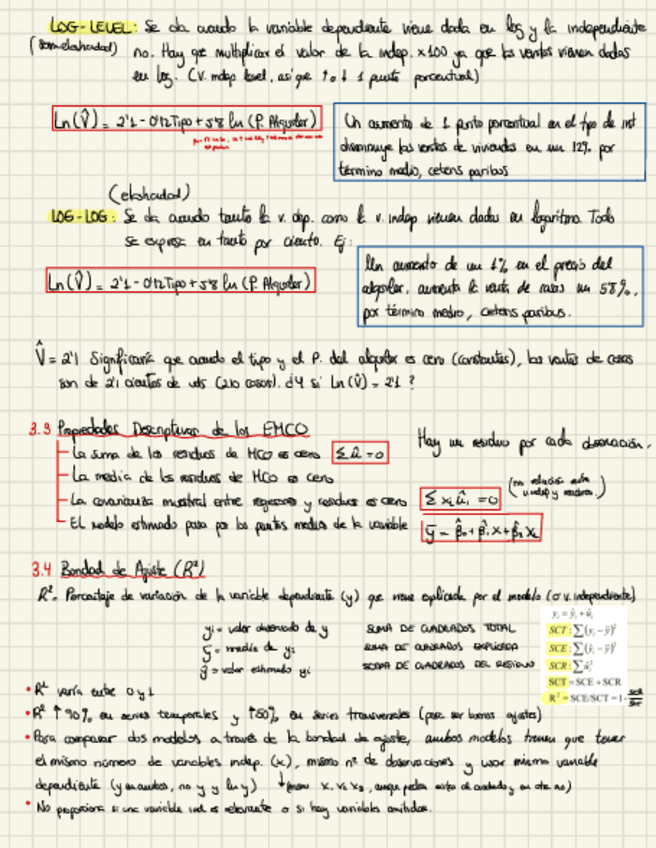 LOG-LEVEL: Se da cuando la variable dependiente viene dada en log y la independiente
(semielasticidad) no. Hay que multiplicar el valor de la indep. x100 ya que las ventas vienen dadas
en log. (V. indep level, así que ↑ o ↓ 1 punto porcentual)
Ln(V̂) = 2'1 - 0'12 Tipo + 5'8 ln (P. Alquiler)
Un aumento de 1 punto porcentual en el tipo de int
disminuye las ventas de viviendas en un 12% por
término medio, ceteris paribus
(elasticidad)
LOG-LOG: Se da cuando tanto la v. dep. como la v. indep vienen dadas en logaritmo. Todo
se expresa en tanto por ciento. Ej:
Ln(V̂) = 2'1 - 0'12 Tipo + 5'8 ln (P. Alquiler)
Un aumento de un 1% en el precio del
alquiler, aumenta la venta de casas un 58%,
por término medio, ceteris paribus.
V̂ = 2'1 Significaría que cuando el tipo y el P. del alquiler es cero (constantes), las ventas de casas
son de 2'1 cientos de uds (210 casas). ¿Y si Ln(V̂) = 2'1 ?
3.3 Propiedades Descriptivas de los EMCO
Hay un residuo por cada observación.
La suma de los residuos de MCO es cero Σ û = 0
La media de los residuos de MCO es cero
La covarianza muestral entre regresores y residuos es cero Σ xᵢ ûᵢ = 0 (no relación entre v. indep y residuos.)
El modelo estimado pasa por los puntos medios de la variable ȳ = β̂₀ + β̂₁x + β̂₂x₂
3.4 Bondad de Ajuste (R²)
R². Porcentaje de variación de la variable dependiente (y) que viene explicada por el modelo (o v. independiente)
yᵢ = ŷᵢ + ûᵢ
yi = valor observado de y SUMA DE CUADRADOS TOTAL SCT: Σ(yᵢ - ȳ)²
ȳ = media de yi SUMA DE CUADRADOS EXPLICADA SCE: Σ(ŷᵢ - ȳ)²
ŷ = valor estimado yi SUMA DE CUADRADOS DEL RESIDUO SCR: Σûᵢ²
SCT = SCE + SCR
R² = SCE/SCT = 1 - SCR/SCT
• R² varía entre 0 y 1
• R² ↑ 90% en series temporales y ↑ 50% en series transversales (para ser buenos ajustes)
• Para comparar dos modelos a través de la bondad de ajuste, ambos modelos tienen que tener
el mismo número de variables indep. (x), mismo nº de observaciones y usar misma variable
dependiente (y en ambos, no y y ln y)
• No proporciona si una variable ind. es relevante o si hay variables omitidas.